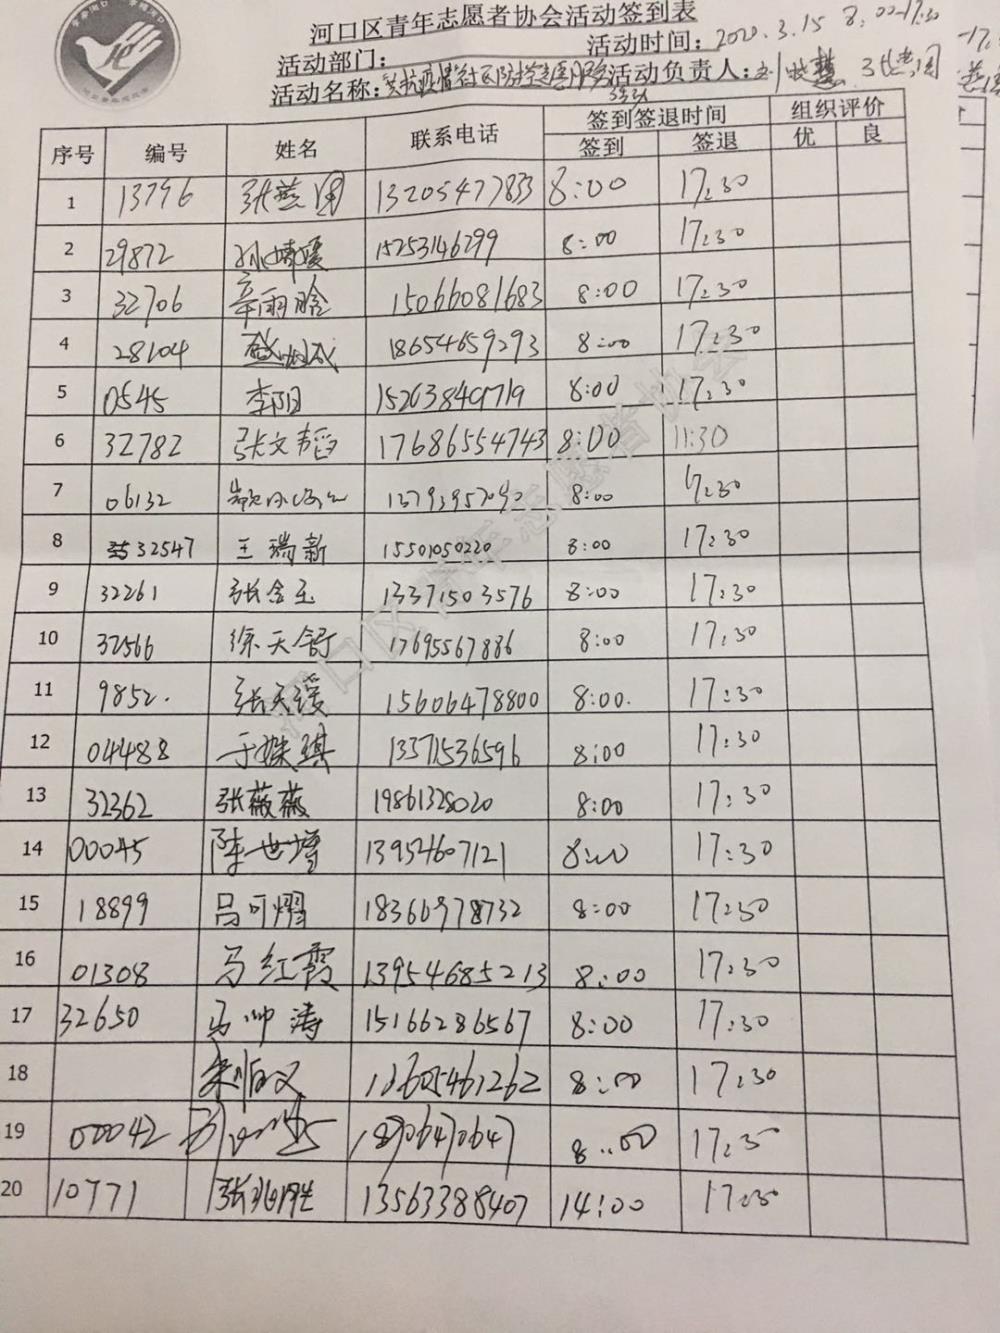 河口区青年志愿者协会活动签到表
活动部门：
活动时间：2020.3.15 8:00-17:30
活动名称：抗疫情社区防控志愿服务活动
活动负责人：
序号 编号 姓名 联系电话 签到签退时间 组织评价
签到 签退 优 良
1 13796 张燕 13205477833 8:00 17:30
2 29872 孙婧媛 15253146299 8:00 17:30
3 32706 辛雨晗 15066081683 8:00 17:30
4 28104 18654659293 8:00 17:30
5 0545 李阳 8:00 17:30
6 32782 张文韬 17686554743 8:00 11:30
7 06132 8:00 17:30
8 32547 王瑞新 15501050220 8:00 17:30
9 32261 张金玉 13371503576 8:00 17:30
10 32566 徐天舒 17695567886 8:00 17:30
11 9852. 张天媛 15606478800 8:00. 17:30
12 04488 于姝琪 13371536596 8:00 17:30
13 32362 张薇薇 19861328020 8:00 17:30
14 00045 陈世增 13954607121 8:00 17:30
15 18899 吕可熠 18366978732 8:00 17:30
16 01308 马红霞 13954685213 8:00 17:30
17 32650 马帅涛 15166286567 8:00 17:30
18 13605461262 8:00 17:30
19 00042 18906470647 8:00 17:30
20 10771 张兆胜 13563388407 14:00 17:30
河口区青年志愿者协会